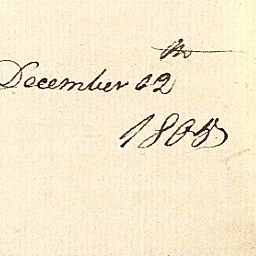 December 12th
1805